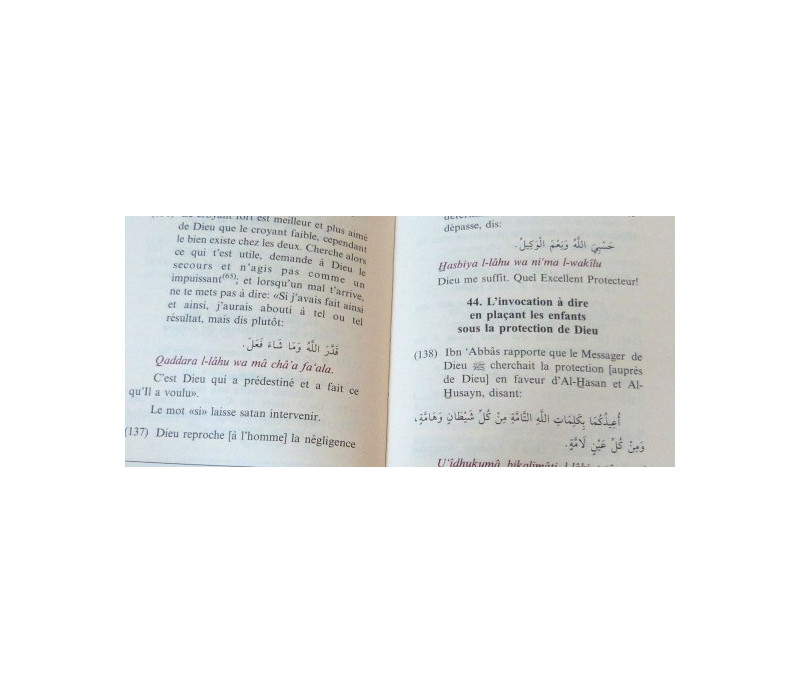 croyant fort est meilleur et plus aimé
de Dieu que le croyant faible, cependant
le bien existe chez les deux. Cherche alors
ce qui t'est utile, demande à Dieu le
secours et n'agis pas comme un
impuissant(65); et lorsqu'un mal t'arrive,
ne te mets pas à dire: «Si j'avais fait ainsi
et ainsi, j'aurais abouti à tel ou tel
résultat, mais dis plutôt:
قَدَّرَ اللَّهُ وَمَا شَاءَ فَعَلَ.
Qaddara l-lâhu wa mâ châ'a fa'ala.
C'est Dieu qui a prédestiné et a fait ce
qu'Il a voulu».
Le mot «si» laisse satan intervenir.
(137) Dieu reproche [à l'homme] la négligence
dépasse, dis:
حَسْبِيَ اللَّهُ وَنِعْمَ الْوَكِيلُ.
Ḥasbiya l-lâhu wa ni'ma l-wakîlu
Dieu me suffit. Quel Excellent Protecteur!
44. L'invocation à dire
en plaçant les enfants
sous la protection de Dieu
(138) Ibn 'Abbâs rapporte que le Messager de
Dieu ﷺ cherchait la protection [auprès
de Dieu] en faveur d'Al-Ḥasan et Al-
Ḥusayn, disant:
أُعِيذُكُمَا بِكَلِمَاتِ اللَّهِ التَّامَّةِ مِنْ كُلِّ شَيْطَانٍ وَهَامَّةٍ،
وَمِنْ كُلِّ عَيْنٍ لَامَّةٍ.
U'îdhukumâ bikalimâti l-lâhi